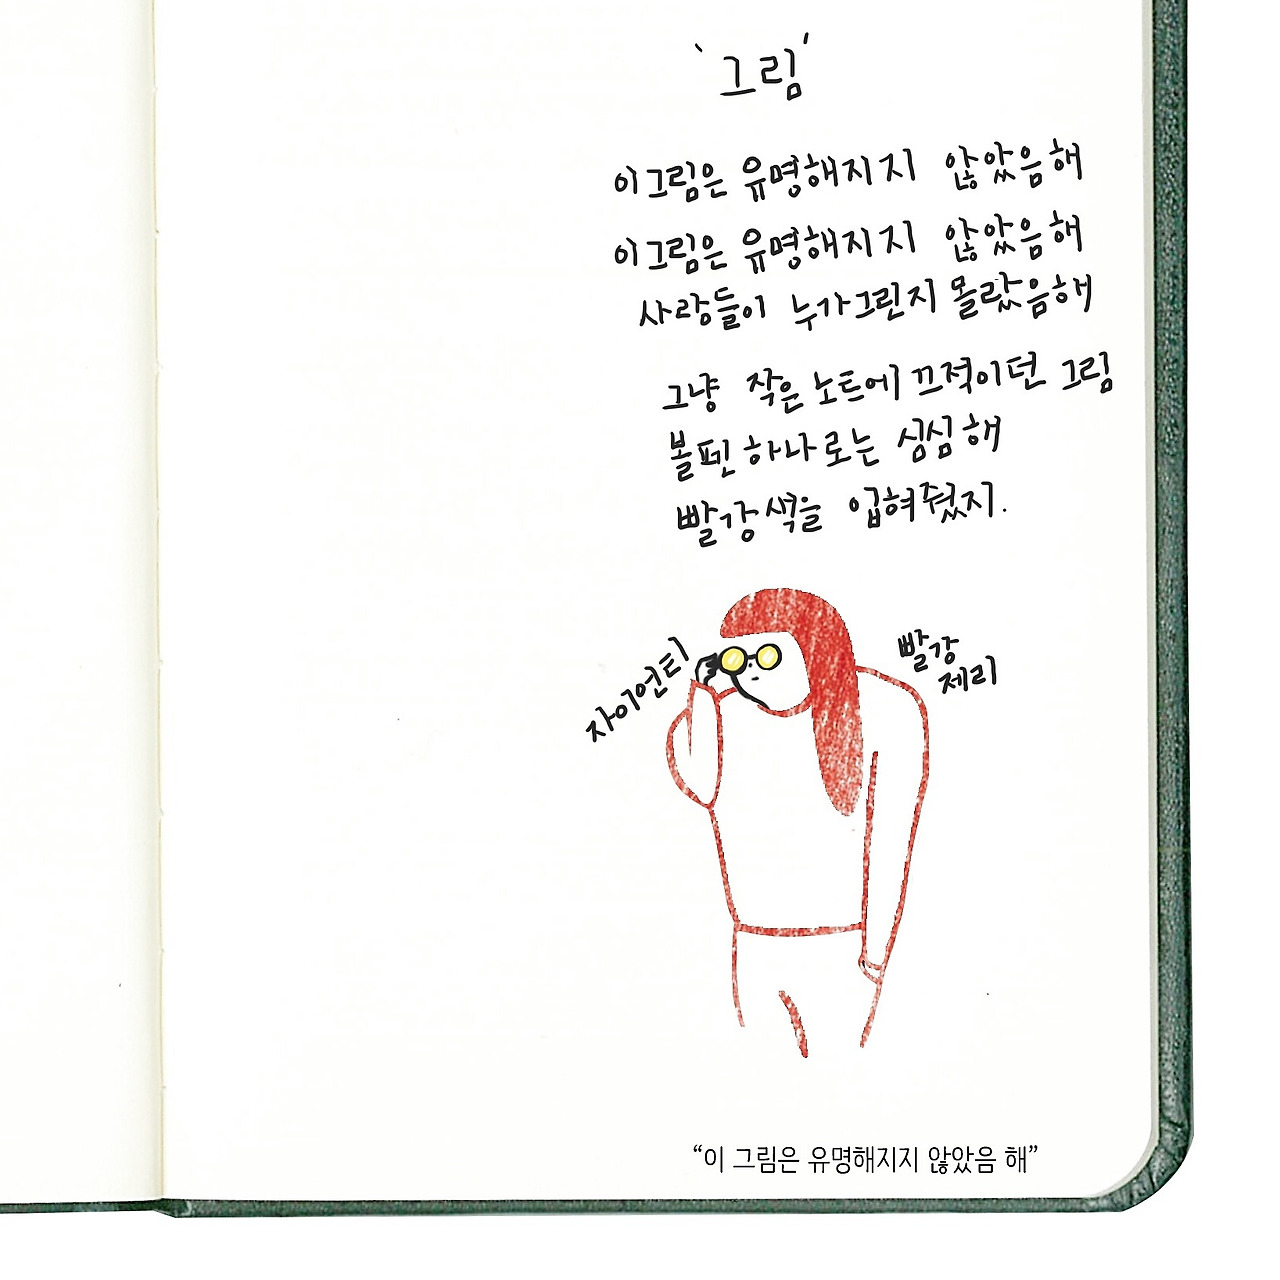 '그림'
이 그림은 유명해지지 않았음 해
이 그림은 유명해지지 않았음 해
사람들이 누가 그린지 몰랐음 해
그냥 작은 노트에 끄적이던 그림
볼펜 하나로는 심심해
빨강색을 입혀줬지.
자이언티
빨강
제리
“이 그림은 유명해지지 않았음 해”